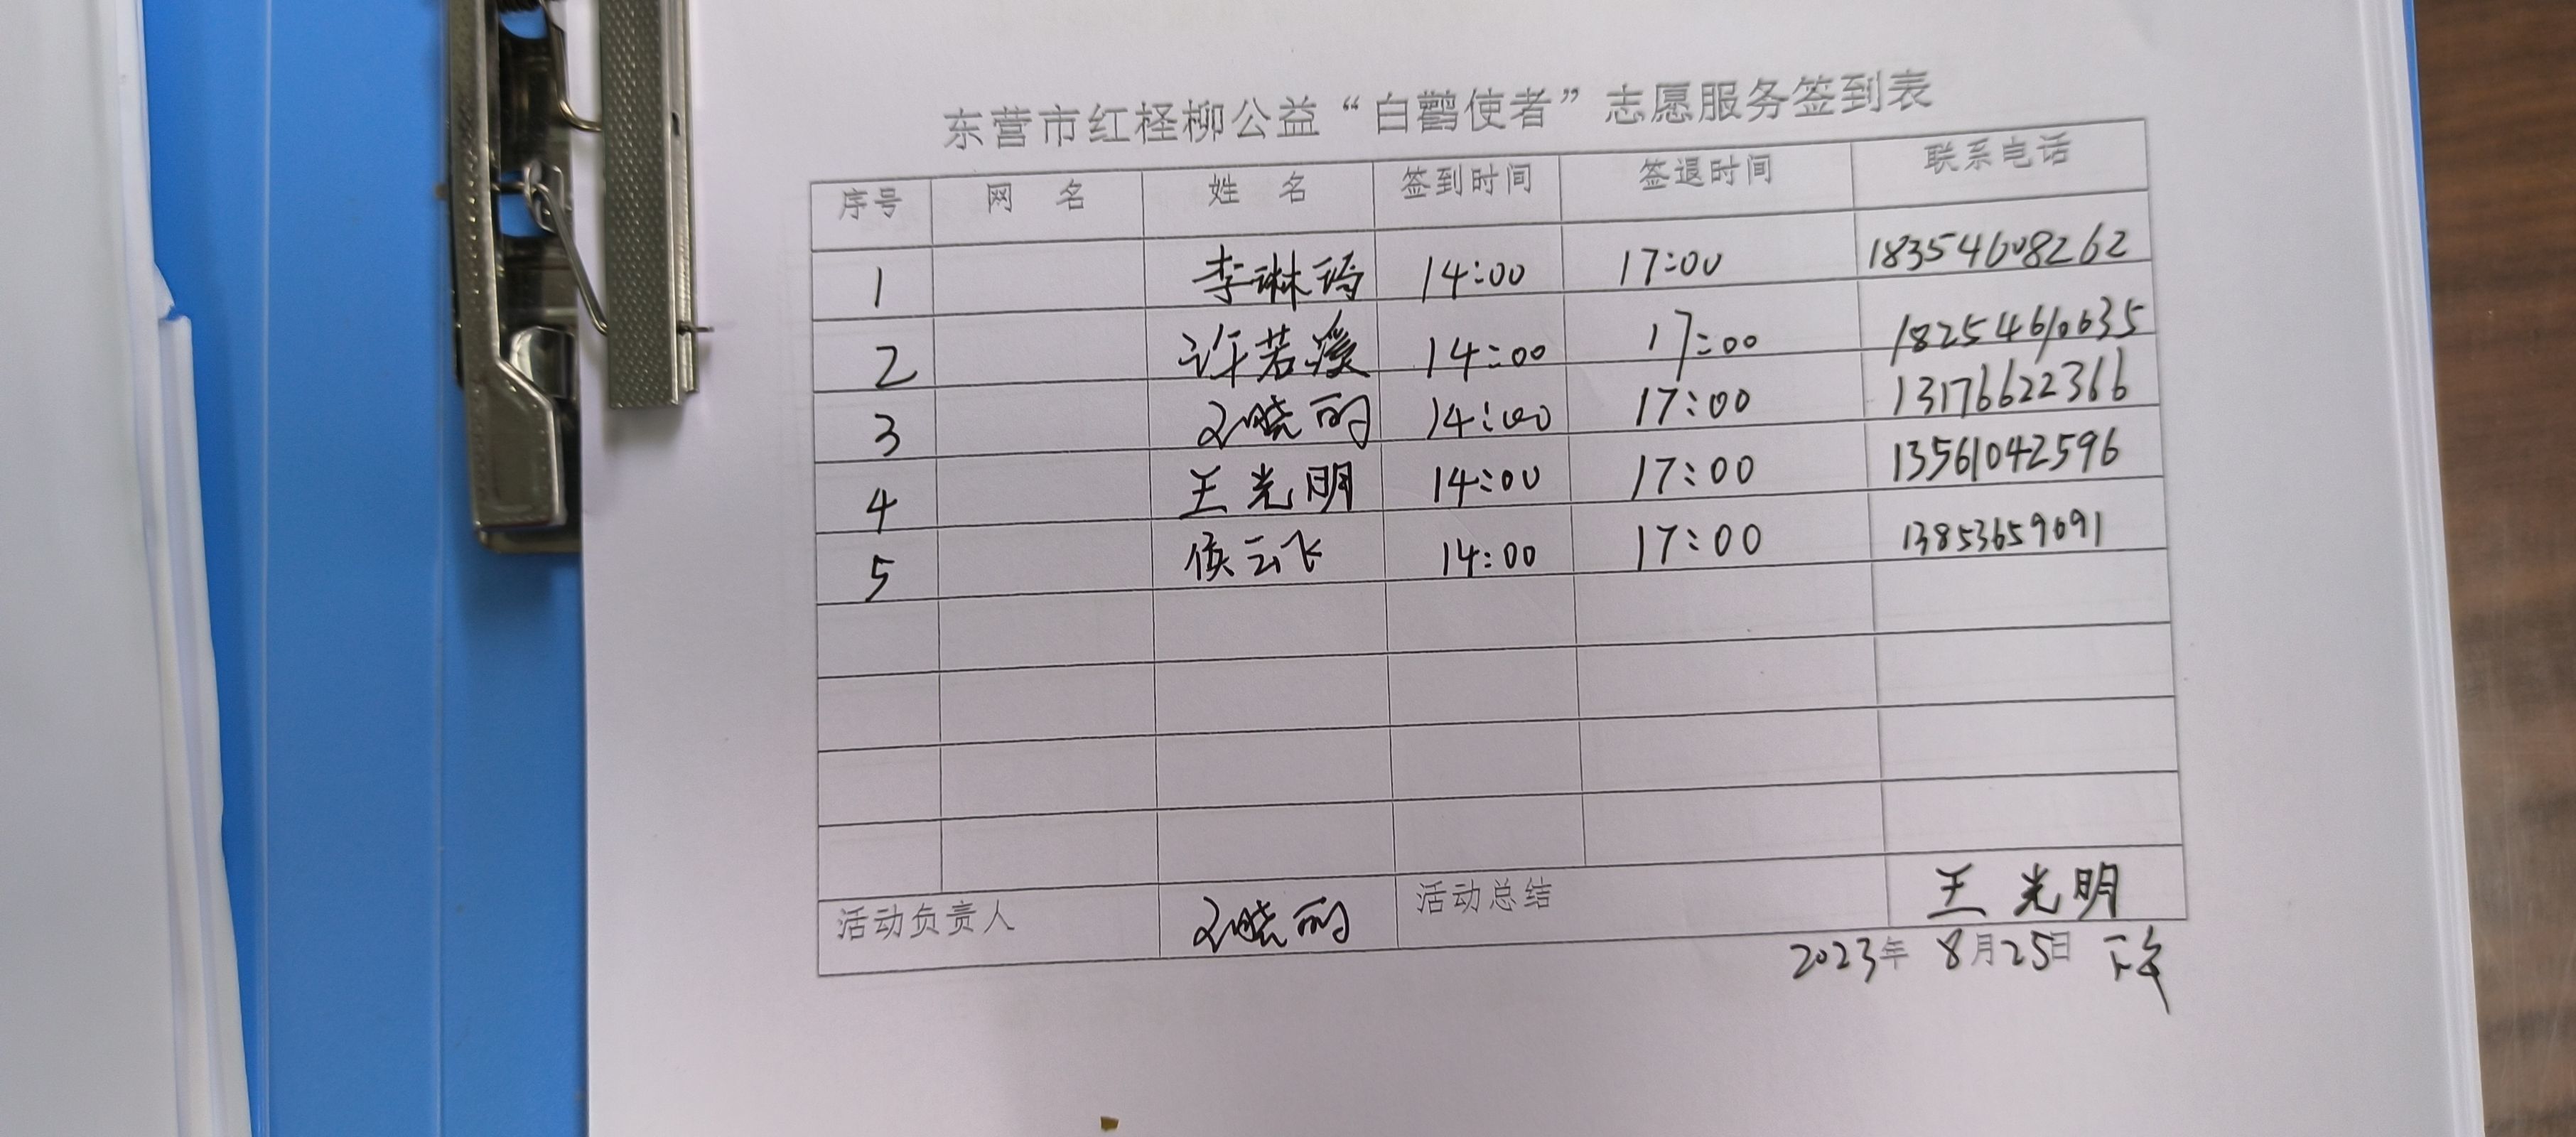 东营市红柽柳公益“白鹳使者”志愿服务签到表
序号 网 名 姓 名 签到时间 签退时间 联系电话
1 李琳 14:00 17:00 18354608262
2 许若溪 14:00 17:00 18254610635
3 晓丽 14:00 17:00 13176622366
4 王光明 14:00 17:00 13561042596
5 侯云飞 14:00 17:00 13853659091
活动负责人 晓丽 活动总结 王光明
2023年 8月25日 下午